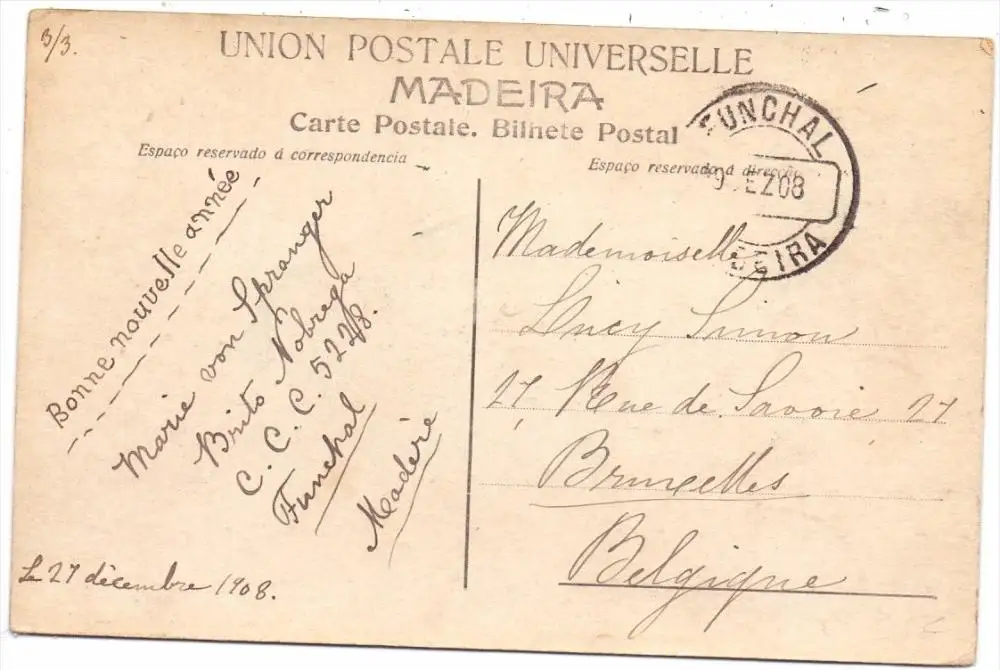 3/3.
UNION POSTALE UNIVERSELLE
MADEIRA
Carte Postale. Bilhete Postal
Espaço reservado á correspondencia
Espaço reservado á direcção
FUNCHAL
9 EZ08
DEIRA
Bonne nouvelle année
Marie von Spranger
Brito Nobrega
C. C. C. 5228.
Funchal
Madère
Le 27 décembre 1908.
Mademoiselle
Lucy Simon
27, Rue de Savoie 27
Bruxelles
Belgique